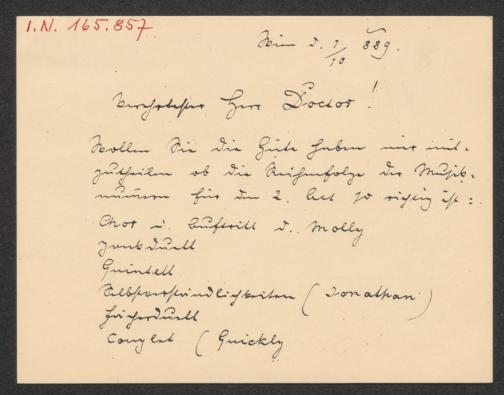 I.N. 165.857
Wien d. 1/10 889.
Verehrtester Herr Doctor!
Wollen Sie die Güte haben mir mit-
zutheilen ob die Reihenfolge der Musik-
nummern für den 2. Act so richtig ist:
Chor u. Auftritt d. Molly
Zankduett
Quintett
Selbstverständlichkeiten (Jonathan)
Fächerduett
Couplet (Quickly